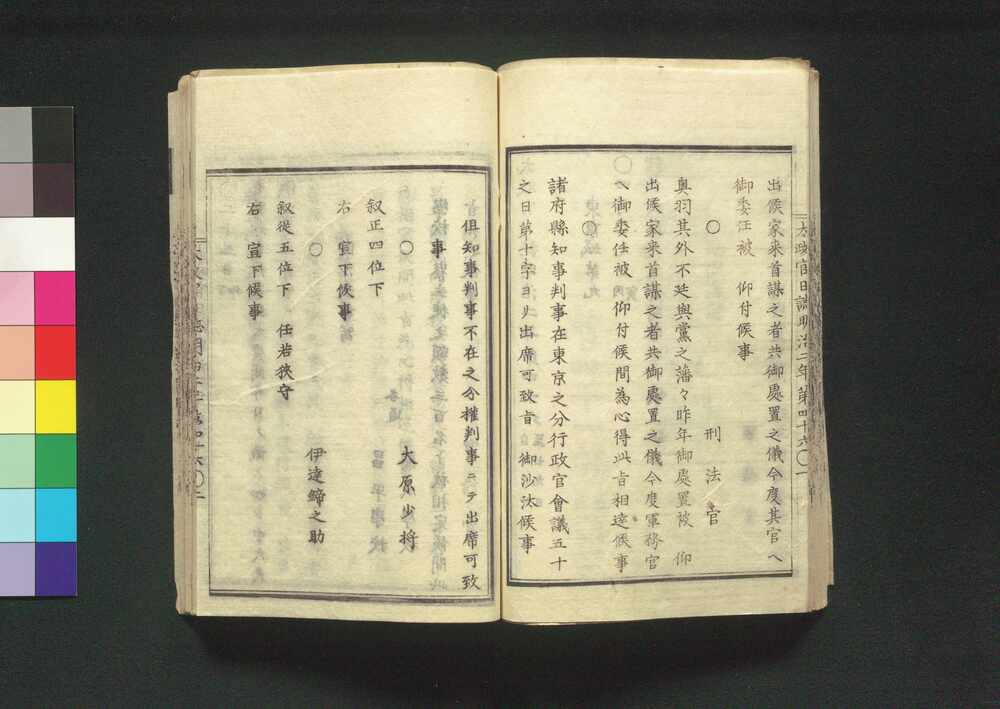 太政官日誌明治二年第四十六〇一
出候家来首謀之者共御處置之儀今度其官ヘ
御委任被　仰付候事
〇　刑法官
奥羽其外不廷與黨之藩々昨年御處置被　仰
出候家来首謀之者共御處置之儀今度軍務官
ヘ御委任被　仰付候間為心得此旨相達候事
〇
諸府縣知事判事在東京之分行政官會議五十
之日第十字ヨリ出席可致旨　御沙汰候事
但知事判事不在之分權判事ニテ出席可致
事
〇　大原少将
叙正四位下
右　宣下候事
〇　伊達締之助
叙従五位下　任若狭守
右　宣下候事